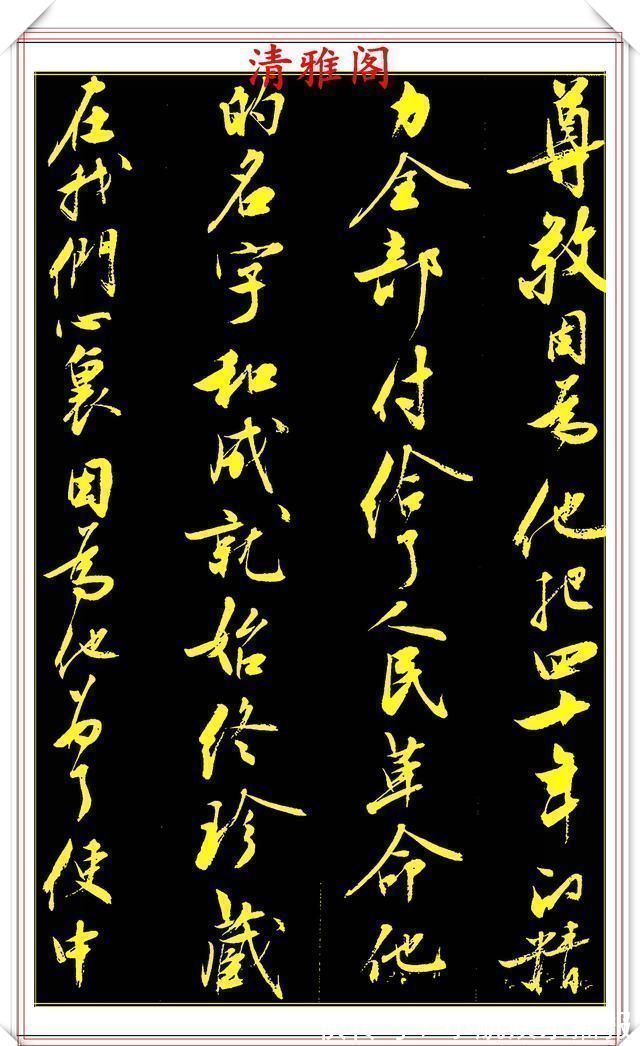 清雅阁
尊敬因為他把四十年的精
力全部付给了人民革命他
的名字和成就始终珍藏
在我們心裏因為他为了使中